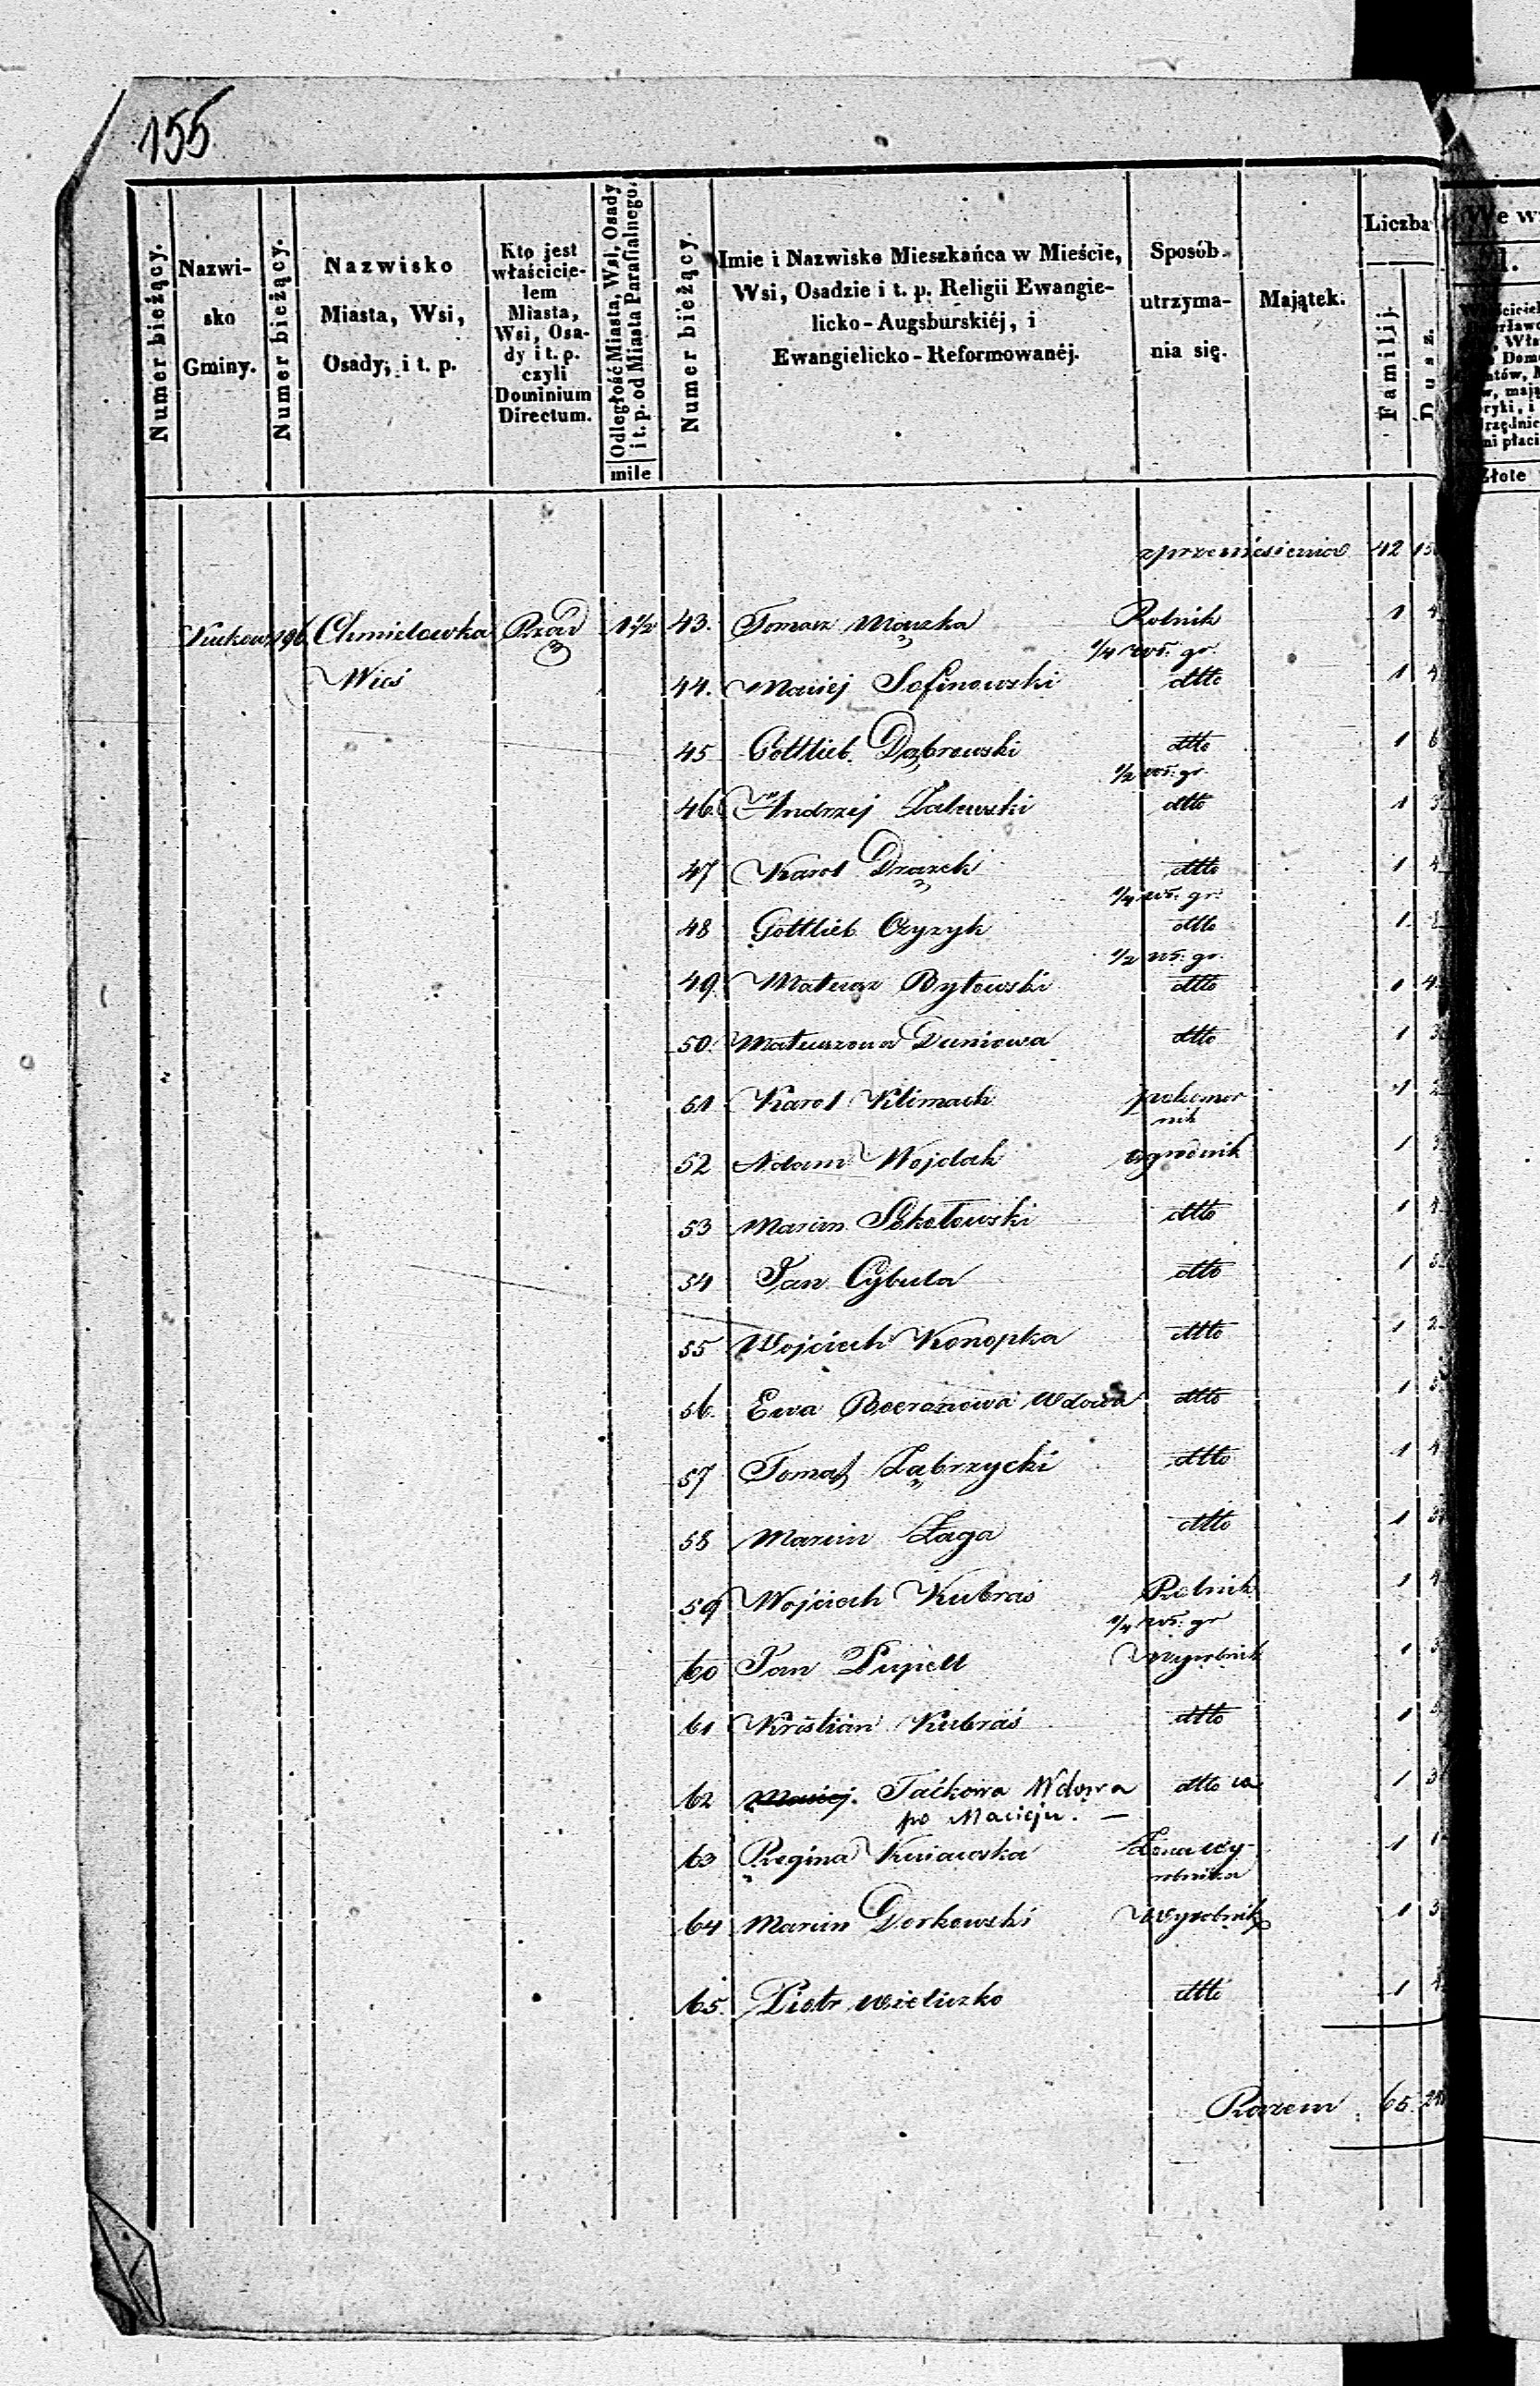 155
Numer bieżący.
Nazwi-
sko
Gminy.
Numer bieżący.
Nazwisko
Miasta, Wsi,
Osady, i t. p.
Kto jest
właścicie-
lem
Miasta,
Wsi, Osa-
dy i t. p.
czyli
Dominium
Directum.
Odległość Miasta, Wsi, Osady
i t. p. od Miasta Parafialnego.
mile
Numer bieżący.
Imie i Nazwisko Mieszkańca w Mieście,
Wsi, Osadzie i t. p. Religii Ewangie-
licko-Augsburskiéj, i
Ewangielicko-Reformowanéj.
Sposób
utrzyma-
nia się.
Majątek.
Liczba
Familij.
Dusz.
z przeniesienia 42
Kukow 196 Chmielowka Rząd 1 1/2 43. Tomasz Rolnik 1 4
1/4 wł. gr.
Wieś 44. Maciej Sofinowski dtto 1 4
45 Gottlieb Dąbrowski dtto 1 6
1/2 wł. gr.
46. Andrzej Zalewski dtto 1 3
47 Karol dtto 1 4
1/4 wł. gr.
48 Gottlieb Czyzyk dtto 1
1/2 wł. gr.
49. Mateusz Bytowski dtto 1 4
50. Mateuszowa Duniowa dtto 1 3
51 Karol Klimach
nik 1 2
52 Adam Wojdak ogrodnik 1
53 Marcin Sokołowski dtto 1 4
54 Jan Cybula dtto 1
55 Wojciech Konopka dtto 1 2
56. Ewa Wdowa dtto 1
57 Tomasz Ząbrzycki dtto 1 4
58 Marcin Żaga dtto 1
59 Wojciech Kubraś Rolnik 1 4
1/4 wł. gr
60 Jan Pupiell Wyrobnik 1 3
61 Kristian Kubraś dtto 1
62 Maciej. Taćkowa Wdowa dtto wa 1 3
po Macieju. —
63 Regina Żona wy- 1
robnika
64 Marcin Dorkowski Wyrobnik 1 3
65. Piotr Wieliczko dtto 1 4
Razem 65.